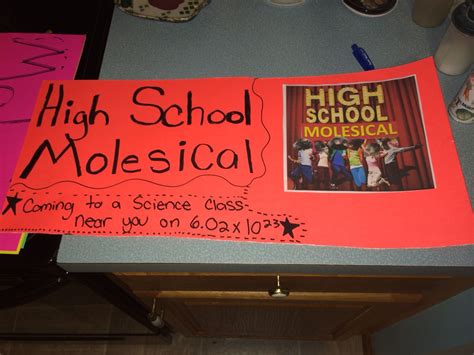 High School
Molesical
Coming to a Science Class
near you on 6.02x10²³
HIGH
SCHOOL
MOLESICAL